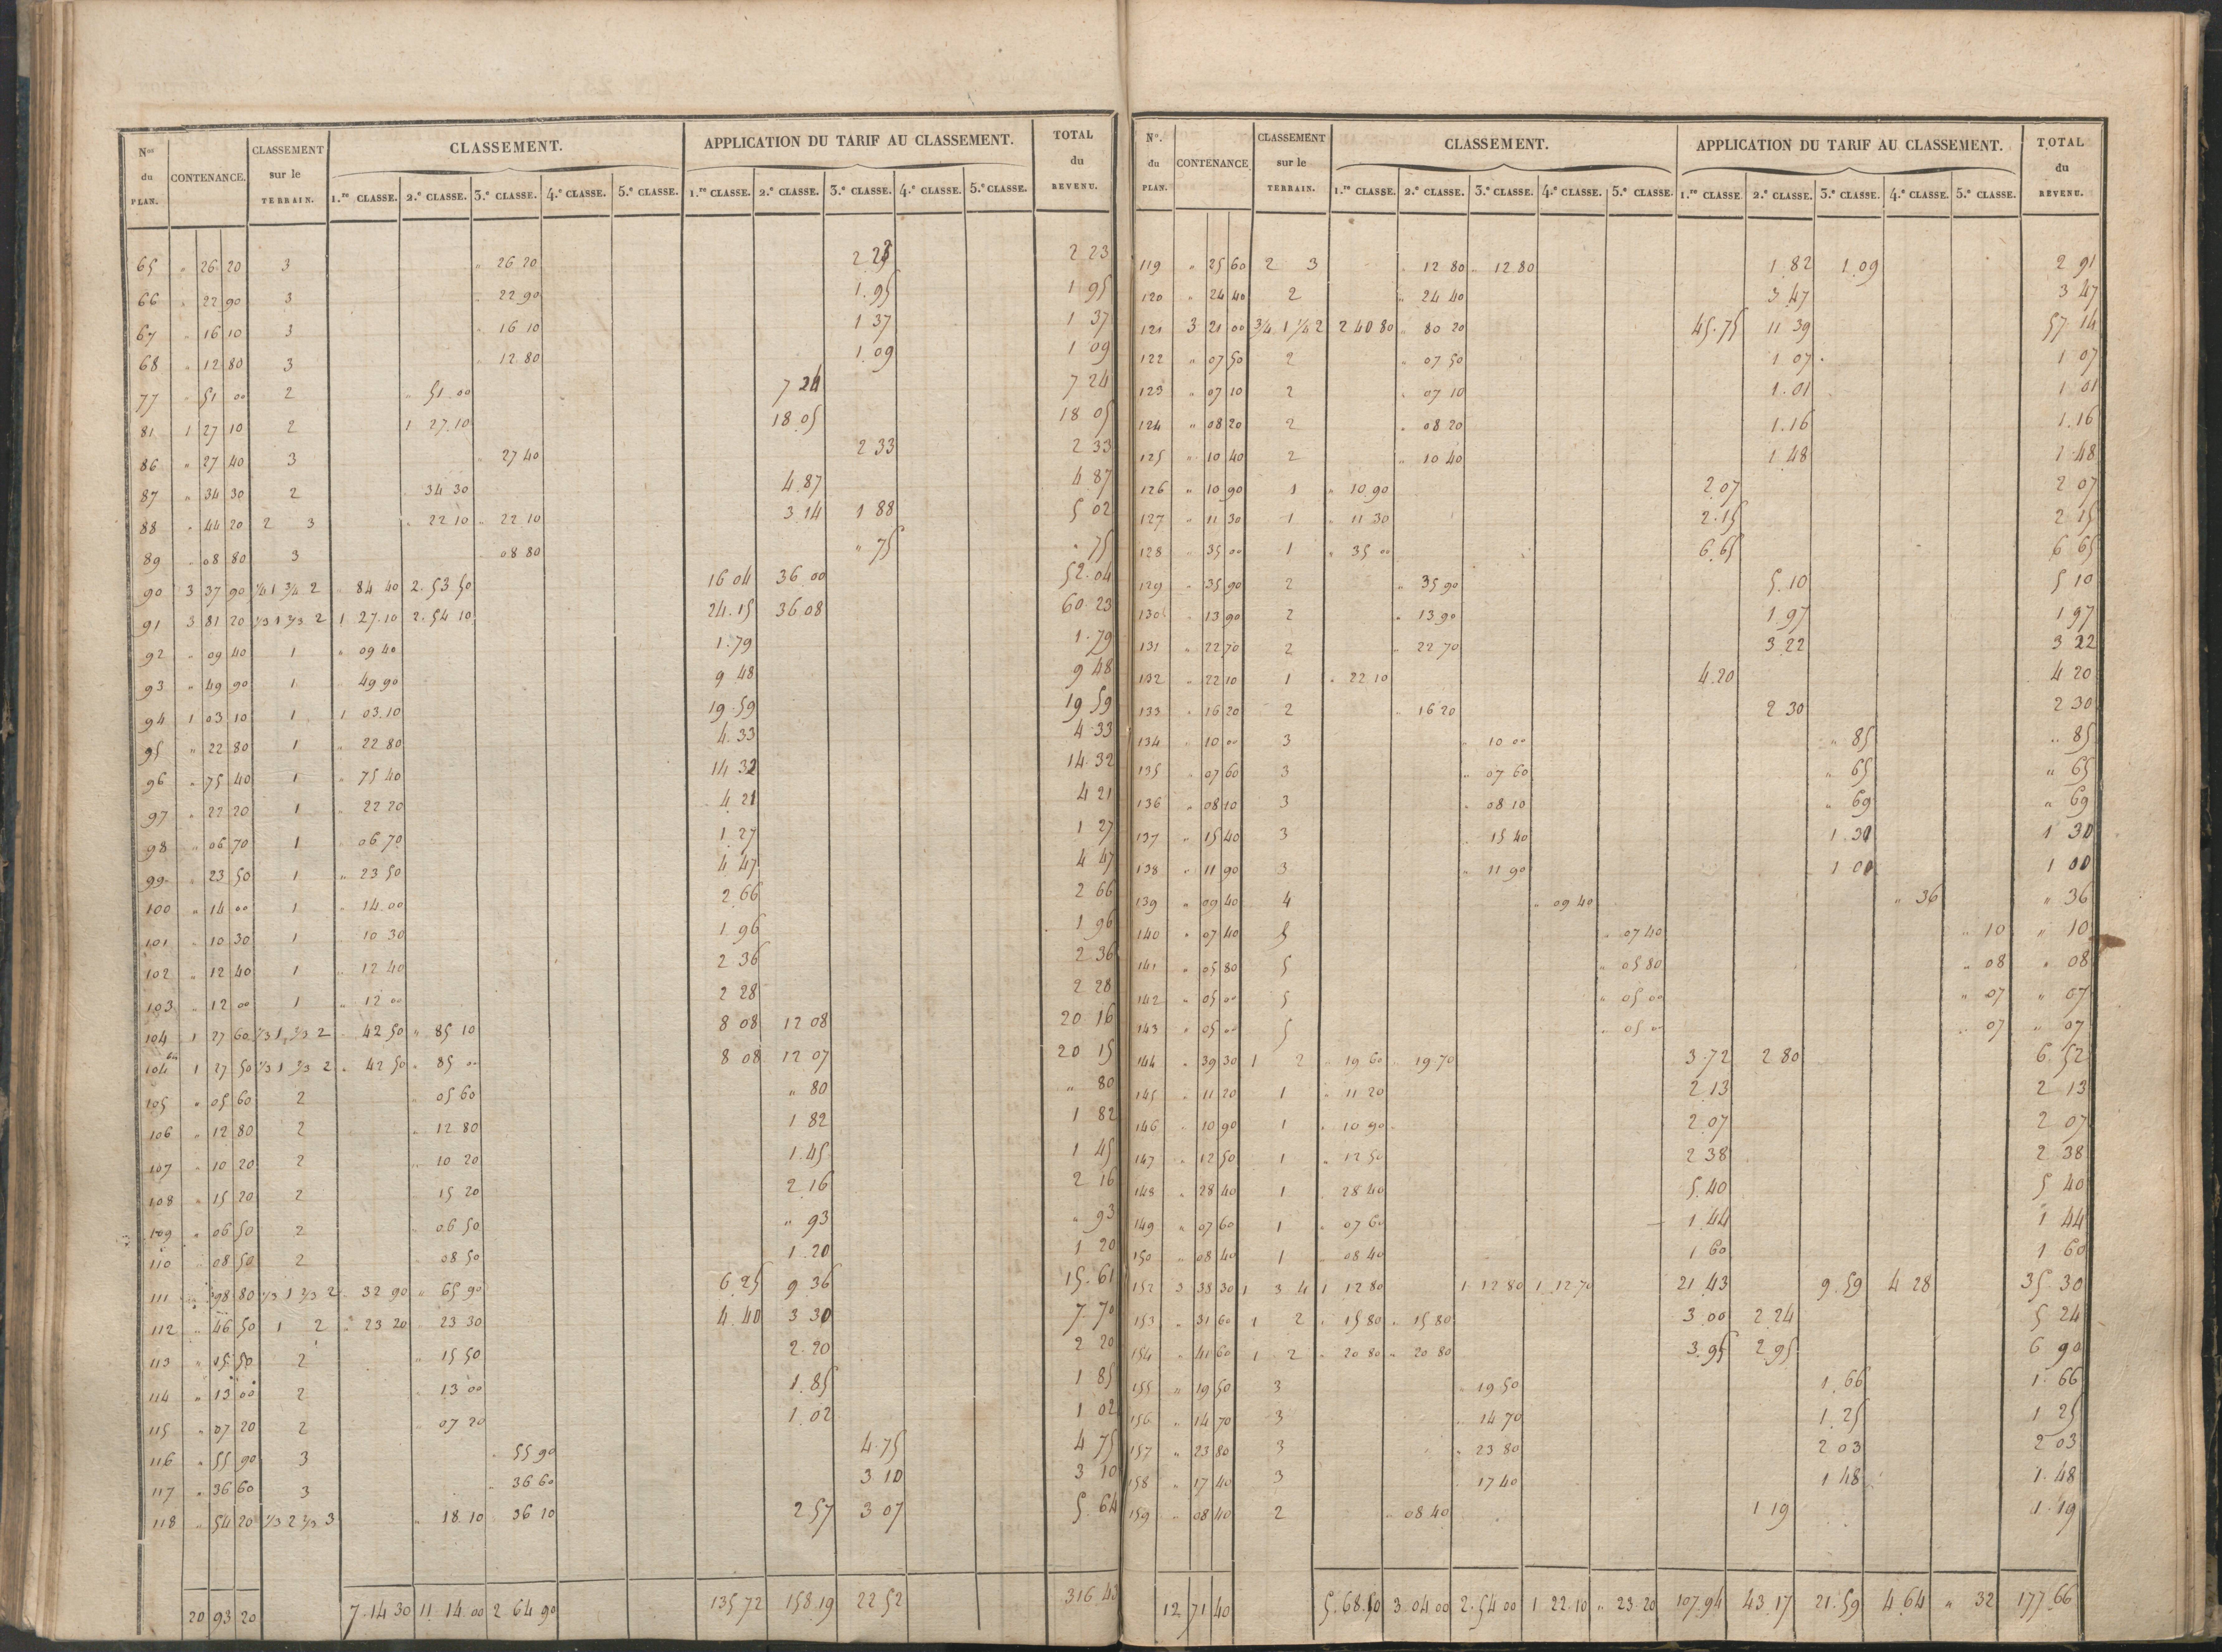 Nos du PLAN. CONTENANCE. CLASSEMENT sur le TERRAIN. CLASSEMENT. APPLICATION DU TARIF AU CLASSEMENT. TOTAL du REVENU.
1.re CLASSE. 2.e CLASSE. 3.e CLASSE. 4.e CLASSE. 5.e CLASSE. 1.re CLASSE. 2.e CLASSE. 3.e CLASSE. 4.e CLASSE. 5.e CLASSE.
65 " 26 20 3 " 26 20 2 23 2 23
66 " 22 90 3 " 22 90 1.95 1 95
67 " 16 10 3 " 16 10 1 37 1 37
68 " 12 80 3 " 12 80 1.09 1 09
77 " 51 00 2 " 51 00 7 24 7 24
81 1 27 10 2 1 27.10 18.05 18 05
86 " 27 40 3 " 27 40 2 33 2 33
87 " 34 30 2 34 30 4.87 4 87
88 " 44 20 2 3 " 22 10 " 22 10 3.14 1 88 5 02
89 " 08 80 3 " 08 80 " 75 " 75
90 3 37 90 1/4 1 3/4 2 " 84 40 2.53.50 16 04 36 00 52.04
91 3 81 20 1/3 1 2/3 2 1 27.10 2.54 10 24.15 36 08 60.23
92 " 09 40 1 " 09 40 1.79 1.79
93 " 49 90 1 " 49 90 9 48 9 48
94 1 03 10 1 1 03.10 19.59 19 59
95 " 22 80 1 " 22 80 4.33 4 33
96 " 75 40 1 " 75 40 14 32 14.32
97 " 22 20 1 " 22 20 4 21 4 21
98 " 06 70 1 " 06 70 1.27 1 27
99 " 23 50 1 " 23 50 4 47 4 47
100 " 14 00 1 " 14.00 2 66 2 66
101 " 10 30 1 " 10 30 1 96 1 96
102 " 12 40 1 " 12 40 2 36 2 36
103 " 12 00 1 " 12 00 2 28 2 28
104 1 27 60 1/3 1 2/3 2 " 42 50 " 85 10 8 08 12 08 20 16
104 bis 1 27 50 1/3 1 2/3 2 " 42 50 " 85 00 8 08 12 07 20 15
105 " 05 60 2 " 05 60 " 80 " 80
106 " 12 80 2 " 12 80 1 82 1 82
107 " 10 20 2 " 10 20 1.45 1 45
108 " 15 20 2 15 20 2.16 2 16
109 " 06 50 2 " 06 50 " 93 " 93
110 " 08 50 2 08 50 1.20 1 20
111 " 98 80 1/3 1 2/3 2 " 32 90 " 65 90 6.25 9 36 15.61
112 " 46 50 1 2 " 23 20 " 23 30 4.40 3 30 7.70
113 " 15 50 2 " 15 50 2.20 2 20
114 " 13 00 2 " 13 00 1.85 1 85
115 " 07 20 2 " 07 20 1.02 1 02
116 " 55 90 3 " 55 90 4.75 4 75
117 " 36 60 3 " 36 60 3 10 3 10
118 " 54 20 1/3 2 2/3 3 " 18.10 36 10 2 57 3 07 5.64
20 93 20 7.14 30 11.14.00 2 64 90 135 72 158.19 22 52 316 43
No. du PLAN. CONTENANCE CLASSEMENT sur le TERRAIN. CLASSEMENT. APPLICATION DU TARIF AU CLASSEMENT. TOTAL du REVENU.
1.re CLASSE. 2.e CLASSE. 3.e CLASSE. 4.e CLASSE. 5.e CLASSE. 1.re CLASSE. 2.e CLASSE. 3.e CLASSE. 4.e CLASSE. 5.e CLASSE.
119 " 25 60 2 3 " 12 80 " 12 80 1.82 1.09 2 91
120 " 24 40 2 " 24 40 3 47 3 47
121 3 21 00 3/4 1 1/4 2 2 40 80 " 80 20 45.75 11 39 57 14
122 " 07 50 2 " 07 50 1 07 1 07
123 " 07 10 2 " 07 10 1.01 1 01
124 " 08 20 2 " 08 20 1.16 1.16
125 " 10 40 2 " 10 40 1.48 1.48
126 " 10 90 1 " 10 90 2.07 2 07
127 " 11 30 1 " 11 30 2.15 2 15
128 " 35 00 1 " 35 00 6.65 6 65
129 " 35 90 2 " 35 90 5.10 5 10
130 " 13 90 2 " 13 90 1 97 1 97
131 " 22 70 2 " 22 70 3 22 3 22
132 " 22 10 1 " 22 10 4.20 4 20
133 " 16 20 2 " 16 20 2 30 2 30
134 " 10 00 3 " 10 00 " 85 " 85
135 " 07 60 3 " 07 60 " 65 " 65
136 " 08 10 3 " 08 10 " 69 " 69
137 " 15 40 3 " 15 40 1.30 1 30
138 " 11 90 3 " 11 90 1 00 1 00
139 " 09 40 4 " 09 40 " 36 " 36
140 " 07 40 5 " 07 40 " 10 " 10
141 " 05 80 5 " 05 80 " 08 " 08
142 " 05 00 5 " 05 00 " 07 " 07
143 " 05 00 5 " 05 00 " 07 " 07
144 " 39 30 1 2 " 19 60 " 19 70 3.72 2 80 6.52
145 " 11 20 1 " 11 20 2.13 2 13
146 " 10 90 1 " 10 90 2.07 2 07
147 " 12 50 1 " 12 50 2 38 2 38
148 " 28 40 1 " 28 40 5.40 5 40
149 " 07 60 1 " 07 60 1.44 1 44
150 " 08 40 1 " 08 40 1 60 1 60
152 3 38 30 1 3 4 1 12 80 1 12 80 1.12 70 21.43 9.59 4 28 35.30
153 " 31 60 1 2 " 15 80 " 15 80 3.00 2 24 5 24
154 " 41 60 1 2 " 20 80 " 20 80 3.95 2 95 6 90
155 " 19 50 3 " 19 50 1.66 1.66
156 " 14 70 3 " 14 70 1.25 1 25
157 " 23 80 3 " 23 80 2 03 2 03
158 " 17 40 3 " 17 40 1 48 1.48
159 " 08 40 2 " 08 40 1 19 1.19
12 71 40 5.68.10 3.04 00 2.54 00 1 22.10 " 23 20 107.94 43.17 21.59 4 64 " 32 177.66